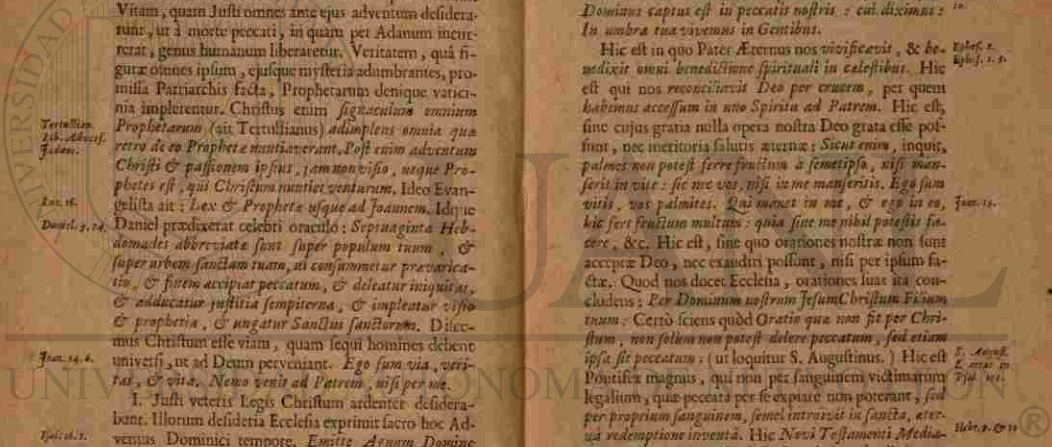 Vitam, quam Justi omnes ante ejus adventum desidera-
runt, ut à morte peccati, in quam per Adamum incur-
rerat, genus humanum liberaretur. Veritatem, quâ fi-
guræ omnes ipsum, ejusque mysteria adumbrantes, pro-
missa Patriarchis facta, Prophetarum denique vatici-
nia implerentur. Christus enim signaculum omnium
Prophetarum (ait Tertullianus) adimplens omnia quæ
retro de eo Prophetæ nuntiaverant, Post enim adventum
Christi & passionem ipsius, jam non visio, neque Pro-
phetes est, qui Christum nuntiet venturum, Ideo Evan-
gelista ait: Lex & Prophetæ usque ad Joannem. Idque
Daniel prædixerat celebri oraculo: Septuaginta Heb-
domades abbreviatæ sunt super populum tuum, &
super urbem sanctam tuam, ut consummetur prævarica-
tio, & finem accipiat peccatum, & deleatur iniquitas,
& adducatur justitia sempiterna, & impleatur visio
& prophetia, & ungatur Sanctus sanctorum. Disce-
mus Christum esse viam, quam sequi homines debent
universi, ut ad Deum perveniant. Ego sum via, veri-
tas, & vita. Nemo venit ad Patrem, nisi per me.
I. Justi veteris Legis Christum ardenter desidera-
bant. Illorum desideria Ecclesia exprimit sacro hoc Ad-
ventus Dominici tempore. Emitte Agnum Domine
Tertullian.
Lib. Advers.
Judæos.
Luc. 16.
Daniel. 9. 24.
Joan. 14. 6.
Isai. 16. 1.
Dominus captus est in peccatis nostris: cui diximus:
In umbra tua vivemus in Gentibus.
Hic est in quo Pater Æternus nos vivificavit, & be-
nedixit omni benedictione spirituali in cælestibus. Hic
est qui nos reconciliavit Deo per crucem, per quem
habemus accessum in uno Spiritu ad Patrem. Hic est,
sine cujus gratia nulla opera nostra Deo grata esse pos-
sunt, nec meritoria salutis æternæ: Sicut enim, inquis,
palmes non potest ferre fructum à semetipso, nisi man-
serit in vite: sic nec vos, nisi in me manseritis. Ego sum
vitis, vos palmites. Qui manet in me, & ego in eo,
hic fert fructum multum: quia sine me nihil potestis fa-
cere, &c. Hic est, sine quo orationes nostræ non sunt
acceptæ Deo, nec exaudiri possunt, nisi per ipsum fa-
ctæ. Quod nos docet Ecclesia, orationes suas ita con-
cludens: Per Dominum nostrum Jesum Christum Filium
tuum: Certò sciens quòd Oratio quæ non fit per Chri-
stum, non solum non potest delere peccatum, sed etiam
ipsa fit peccatum: (ut loquitur S. Augustinus.) Hic est
Pontifex magnus, qui non per sanguinem victimarum
legalium, quæ peccata per se expiare non poterant, sed
per proprium sanguinem, semel introivit in sancta, æter-
nâ redemptione inventâ. Hic Novi Testamenti Media-
Ephes. 2.
Ephes. 1. 3.
Joan. 15.
S. August.
Psal. 108.
Hebr. 9. & 10
UNIVERSIDAD
UANL